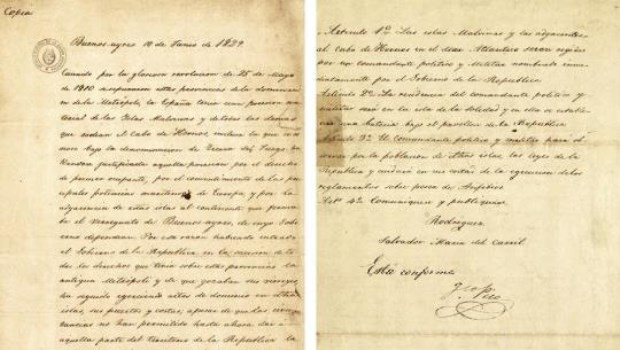 Copia
Buenos ayres 10 de Junio de 1829.
Cuando por la gloriosa revolucion de 25 de Mayo
de 1810 se separaron estas provincias de la dominacion
de la Metrópoli, la España tenia una posesion ma
terial de las Islas Malvinas y de todas las demas
que rodean el Cabo de Hornos, incluso la que se cono
ce bajo la denominacion de Tierra del Fuego.
justificada aquella posesion por el derecho
de primer ocupante, por el consentimiento de las prin
cipales potencias maritimas de Europa, y por la
adyacencia de estas islas al continente que forma
ba el Vireynato de Buenos ayres, de cuyo Gobi
erno dependian. Por esta razon habiendo entrado
el Gobierno de la Republica en la sucesion de to
dos los derechos que tenia sobre estas provincias la
antigua Metrópoli y de que gozaban sus vireyes,
ha seguido ejerciendo actos de dominio en dichas
islas, sus puertos y costas, apesar de que las circuns
tancias no han permitido hasta ahora dar a
aquella parte del territorio de la Republica la
Articulo 1º Las islas Malvinas y las adyacentes
al Cabo de Hornos en el mar Atlantico seran regidas
por un comandante politico y militar nombrado inme
diatamente por el Gobierno de la Republica
Articulo 2º La residencia del comandante politico y
militar será en la isla de la Soledad y en ella se estable
cerá una bateria bajo el pavellon de la Republica
Articulo 3º El comandante politico y militar hará ob
servar por la poblacion de dichas islas, las leyes de la
Republica y cuidará en sus costas de la ejecucion de los
reglamentos sobre pesca de Anfibios.
Artº 4º Comuniquese y publiquese.
Rodriguez
Salvador Maria del Carril
Está conforme
Pico